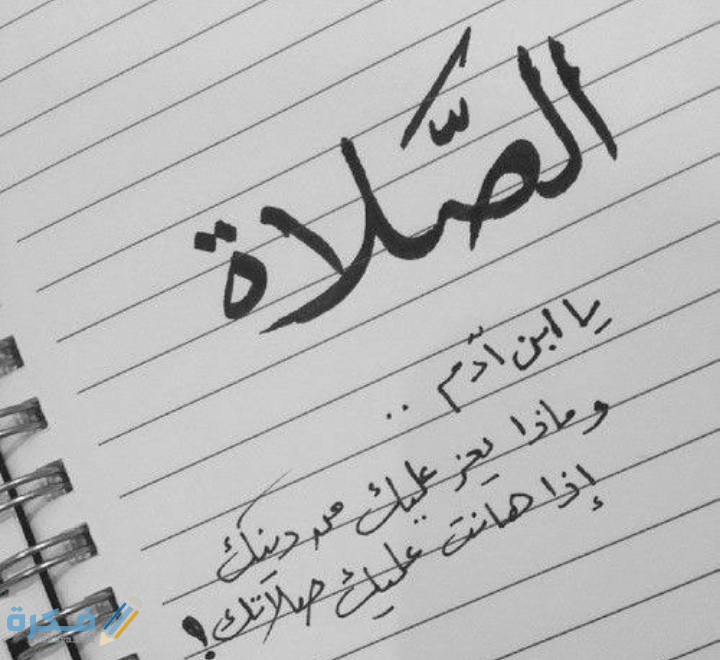 الصَّلاة
يا ابن آدّم ..
وماذا يعز عليك من دينك
إذا هانت عليك صلاتك!
فكرة